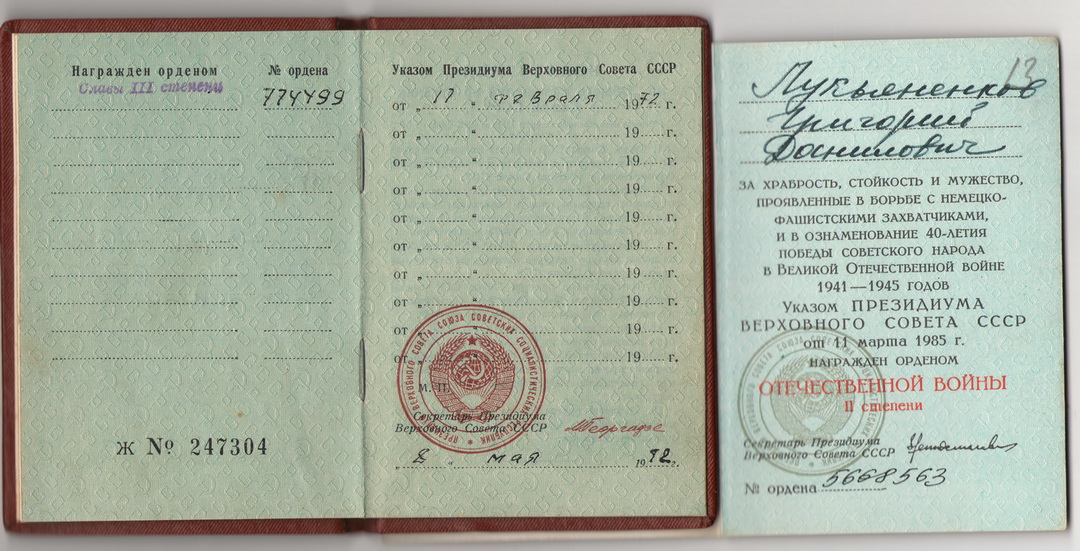 Награжден орденом № ордена
Славы III степени 774499
Указом Президиума Верховного Совета СССР
от „ 17 “ февраля 1972 г.
от „ “ 19 г.
от „ “ 19 г.
от „ “ 19 г.
от „ “ 19 г.
от „ “ 19 г.
от „ “ 19 г.
от „ “ 19 г.
от „ “ 19 г.
от „ “ 19 г.
М. П.
Секретарь Президиума
Верховного Совета СССР МГеоргадзе
„ 8 “ мая 1972 г.
Ж № 247304
13
Лукьяненков
Григорий
Данилович
ЗА ХРАБРОСТЬ, СТОЙКОСТЬ И МУЖЕСТВО,
ПРОЯВЛЕННЫЕ В БОРЬБЕ С НЕМЕЦКО-
ФАШИСТСКИМИ ЗАХВАТЧИКАМИ,
И В ОЗНАМЕНОВАНИЕ 40-ЛЕТИЯ
ПОБЕДЫ СОВЕТСКОГО НАРОДА
В ВЕЛИКОЙ ОТЕЧЕСТВЕННОЙ ВОЙНЕ
1941—1945 ГОДОВ
УКАЗОМ ПРЕЗИДИУМА
ВЕРХОВНОГО СОВЕТА СССР
от 11 марта 1985 г.
НАГРАЖДЕН ОРДЕНОМ
ОТЕЧЕСТВЕННОЙ ВОЙНЫ
II степени
Секретарь Президиума
Верховного Совета СССР
№ ордена 5668563